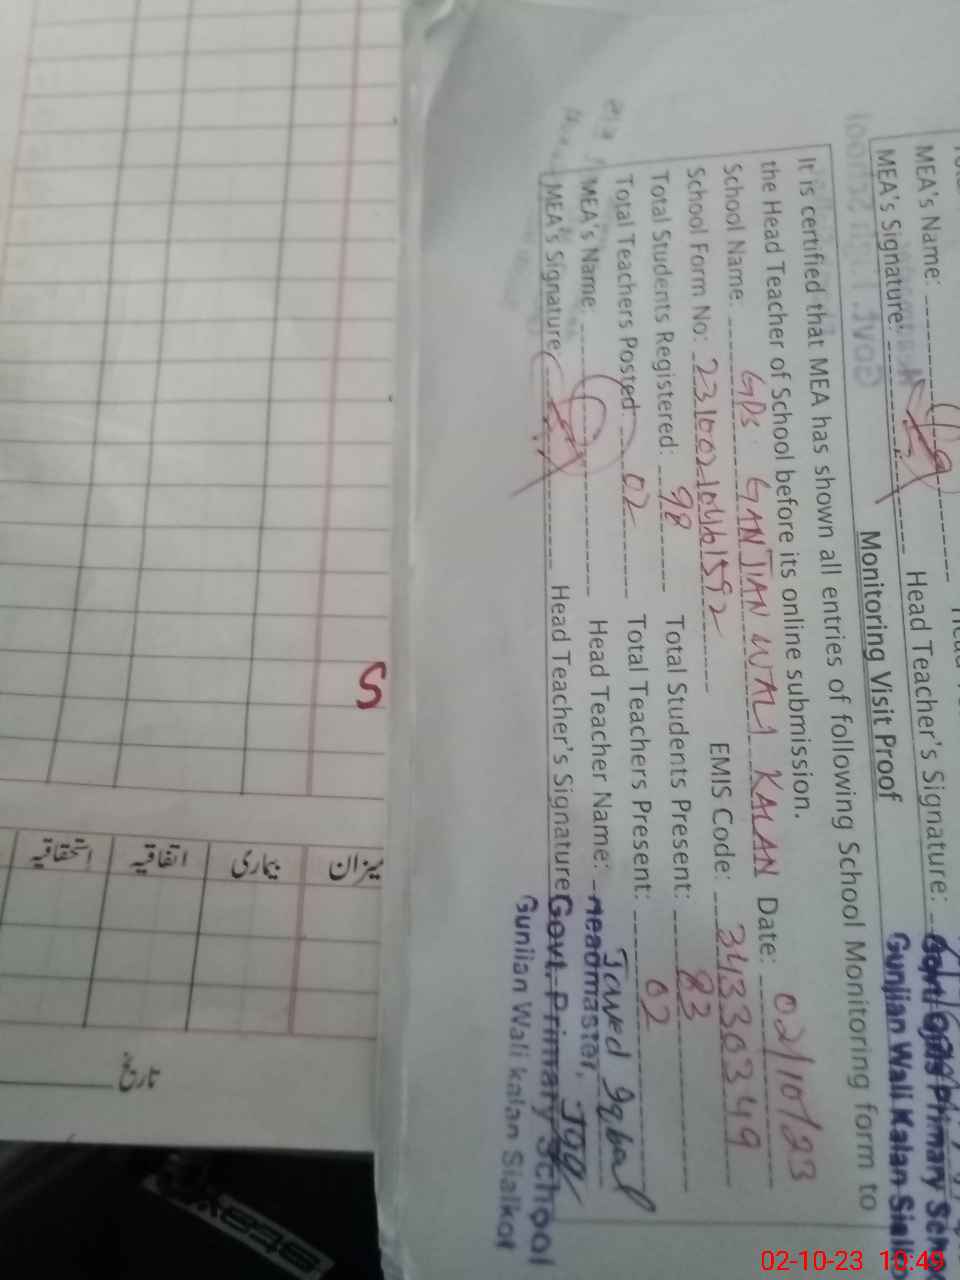 MEA's Name:
MEA's Signature: Head Teacher's Signature: Govt. Girls Primary School
Gunjian Wali Kalan Sialkot
Monitoring Visit Proof
It is certified that MEA has shown all entries of following School Monitoring form to
the Head Teacher of School before its online submission.
School Name: GPS GANJIAN WALI KALAN Date: 02/10/23
School Form No: EMIS Code: 34330349
Total Students Registered: 98 Total Students Present: 83
Total Teachers Posted: 02 Total Teachers Present: 02
MEA's Name: Head Teacher Name: Javed Iqbal
MEA's Signature: Head Teacher's Signature
Headmaster,
Govt. Primary School
Gunjian Wali kalan Sialkot
S
میزان
بیماری
تاریخ
02-10-23 10:49